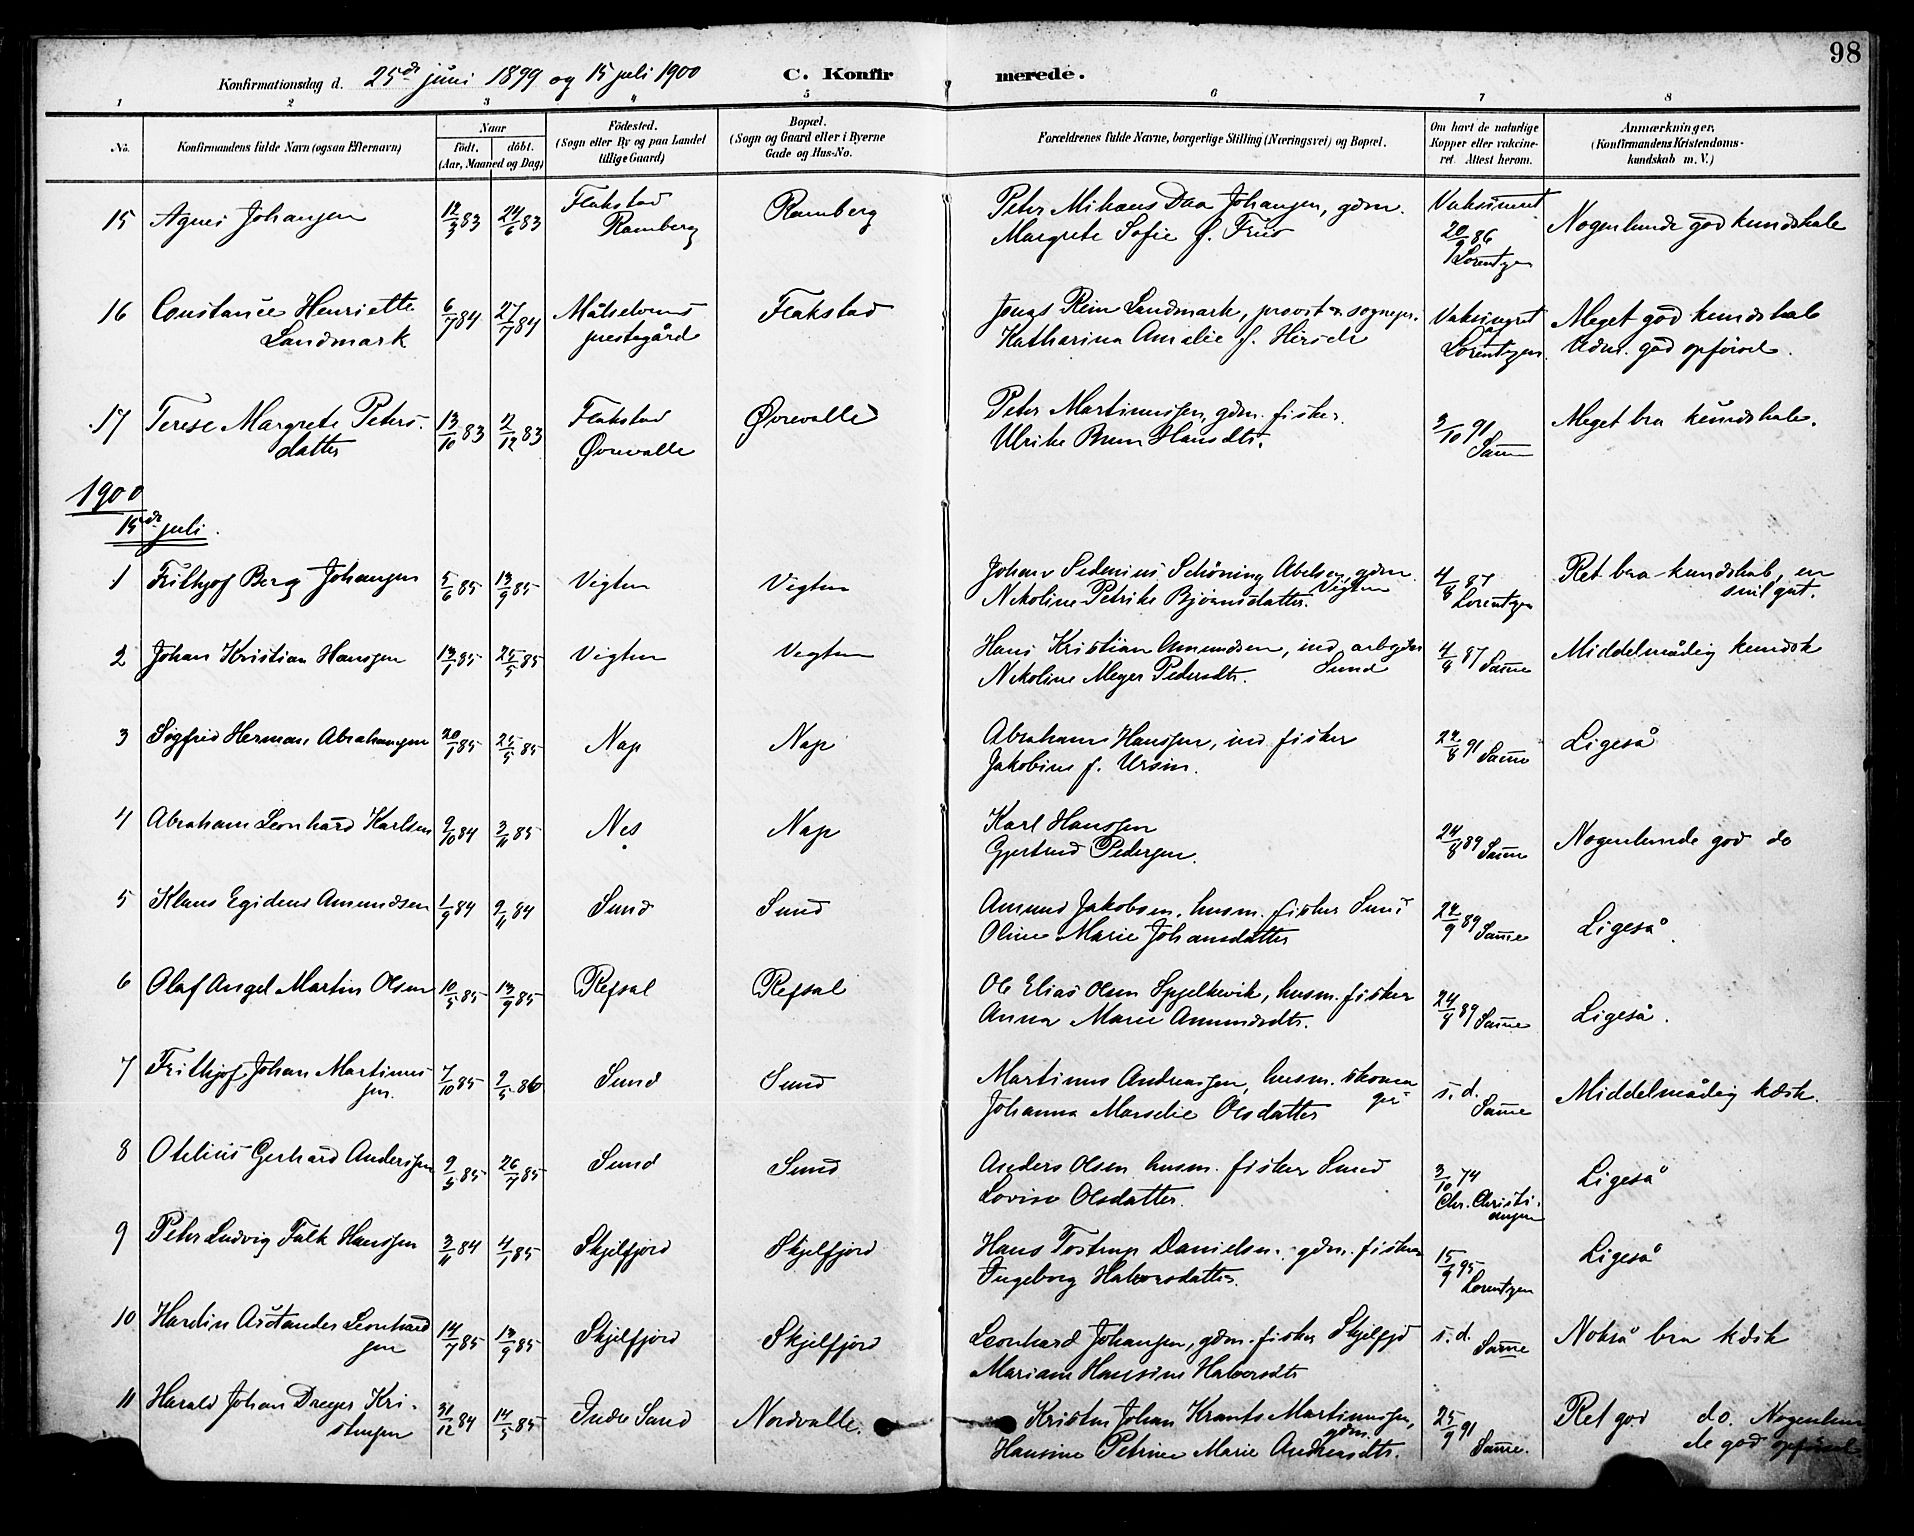 98
Konfirmationsdag d. 25de juni 1899 og 15 juli 1900 C. Konfirmerede.
1 2 3 4 5 6 7 8
No. Konfirmandens fulde Navn (ogsaa Efternavn) Naar födt. döbt. (Aar, Maaned og Dag) Födested. (Sogn eller By og paa Landet tillige Gaard) Bopæl. (Sogn og Gaard eller i Byerne Gade og Hus-No. Forældrenes fulde Navne, borgerlige Stilling (Næringsvei) og Bopæl. Om havt de naturlige Kopper eller vakcineret. Attest herom. Anmærkninger. (Konfirmandens Kristendomskundskab m. V.)
15 Agnes Johansen 12/3 83 24/6 83 Flakstad Ramberg Ramberg Peter Mikaus Daa Johansen, gdm. Vaksineret 20/9 86 Nogenlunde god kundskab
Margrete Sofie f. Friis Lorentzen
16 Constance Henriette 6/7 84 27/7 84 Målselvens Flakstad Jonas Rein Landmark, provst og sognepr. Vaksineret Meget god kundskab
Landmark prestegård Katharina Amalie f. Hirsch Lorentzen Udm. god opførsel.
17 Terese Margrete Peters- 13/10 83 2/12 83 Flakstad Øvrevalle Peter Martinussen, gdm. fisker 3/10 91 Meget bra kundskab.
datter Øvrevalle Ulrike Brun Hansdtr. Samme
1900
15de juli.
1 Frithjof Berg Johansen 5/6 85 13/9 85 Vigten Vigten Johan Sedenius Schöning Abelsen, gdm. 4/8 87 Ret bra kundskab, en
Nikoline Petrike Bjørnsdatter. Vigten Lorentzen snil gut.
2 Johan Kristian Hanssen 13/1 85 25/5 85 Vigten Vigten Hans Kristian Amundsen, ind. arbeyder 4/8 87 Samme Middelmådig kundsk
Nikoline Meyer Pedersdtr. Sund
3 Sigfred Herman Abrahamsen 20/1 85 25/5 85 Nap Nap Abraham Hanssen, ind fisker 24/8 91 Samme Ligeså
Jakobine f. Ursin.
4 Abraham Leonhard Karlsen 9/10 84 3/11 85 Nes Nap Karl Hanssen 24/8 89 Samme Nogenlunde god do
Gjertrud Pedersen.
5 Klaus Egidius Amundsen 1/9 84 9/11 84 Sund Sund Amund Jakobsen, husm. fisker Sund 24/9 89 Samme Ligeså.
Oline Marie Johansdatter
6 Olaf Angel Martin Olsen 10/5 85 13/9 85 Refsal Refsal Ole Elias Olsen Spjelkevik, husm. fisker 24/8 89 Samme Ligeså.
Anna Marie Amundsdtr.
7 Frithjof Johan Martinus- 7/10 85 9/5 86 Sund Sund Martinus Andreassen, husm. skoma- s. d. Middelmådig kdsk.
sen. Johanna Marselie Olsdatter ger Samme
8 Otelius Gerhard Anderssen 9/3 85 26/7 85 Sund Sund Anders Olsen husm. fisker Sund 3/10 74 Ligeså
Lovise Olsdatter. Chr. Christiansen
9 Peter Ludvig Falk Hanssen 3/11 84 4/1 85 Skjelfjord Skjelfjord Hans Tostrup Danielsen. gdm. fisker 15/9 95 Ligeså
Ingeborg Halvorsdatter. Lorentzen
10 Hardin Astander Leonhard 14/7 85 13/9 85 Skjelfjord Skjelfjord Leonhard Johansen, gdm. fisker Skjelfjd s. d. Nokså bra kdsk
sen Mariam Hansine Halvorsdtr Samme
11 Harald Johan Dreyer Kri- 31/12 84 14/5 85 Indre Sand Nordvalle. Kristen Johan Krantz Martinussen, 25/9 91 Ret god do. Nogenlun
stensen gdm. Hansine Petrine Marie Andreasdtr. Samme. de god opførsel